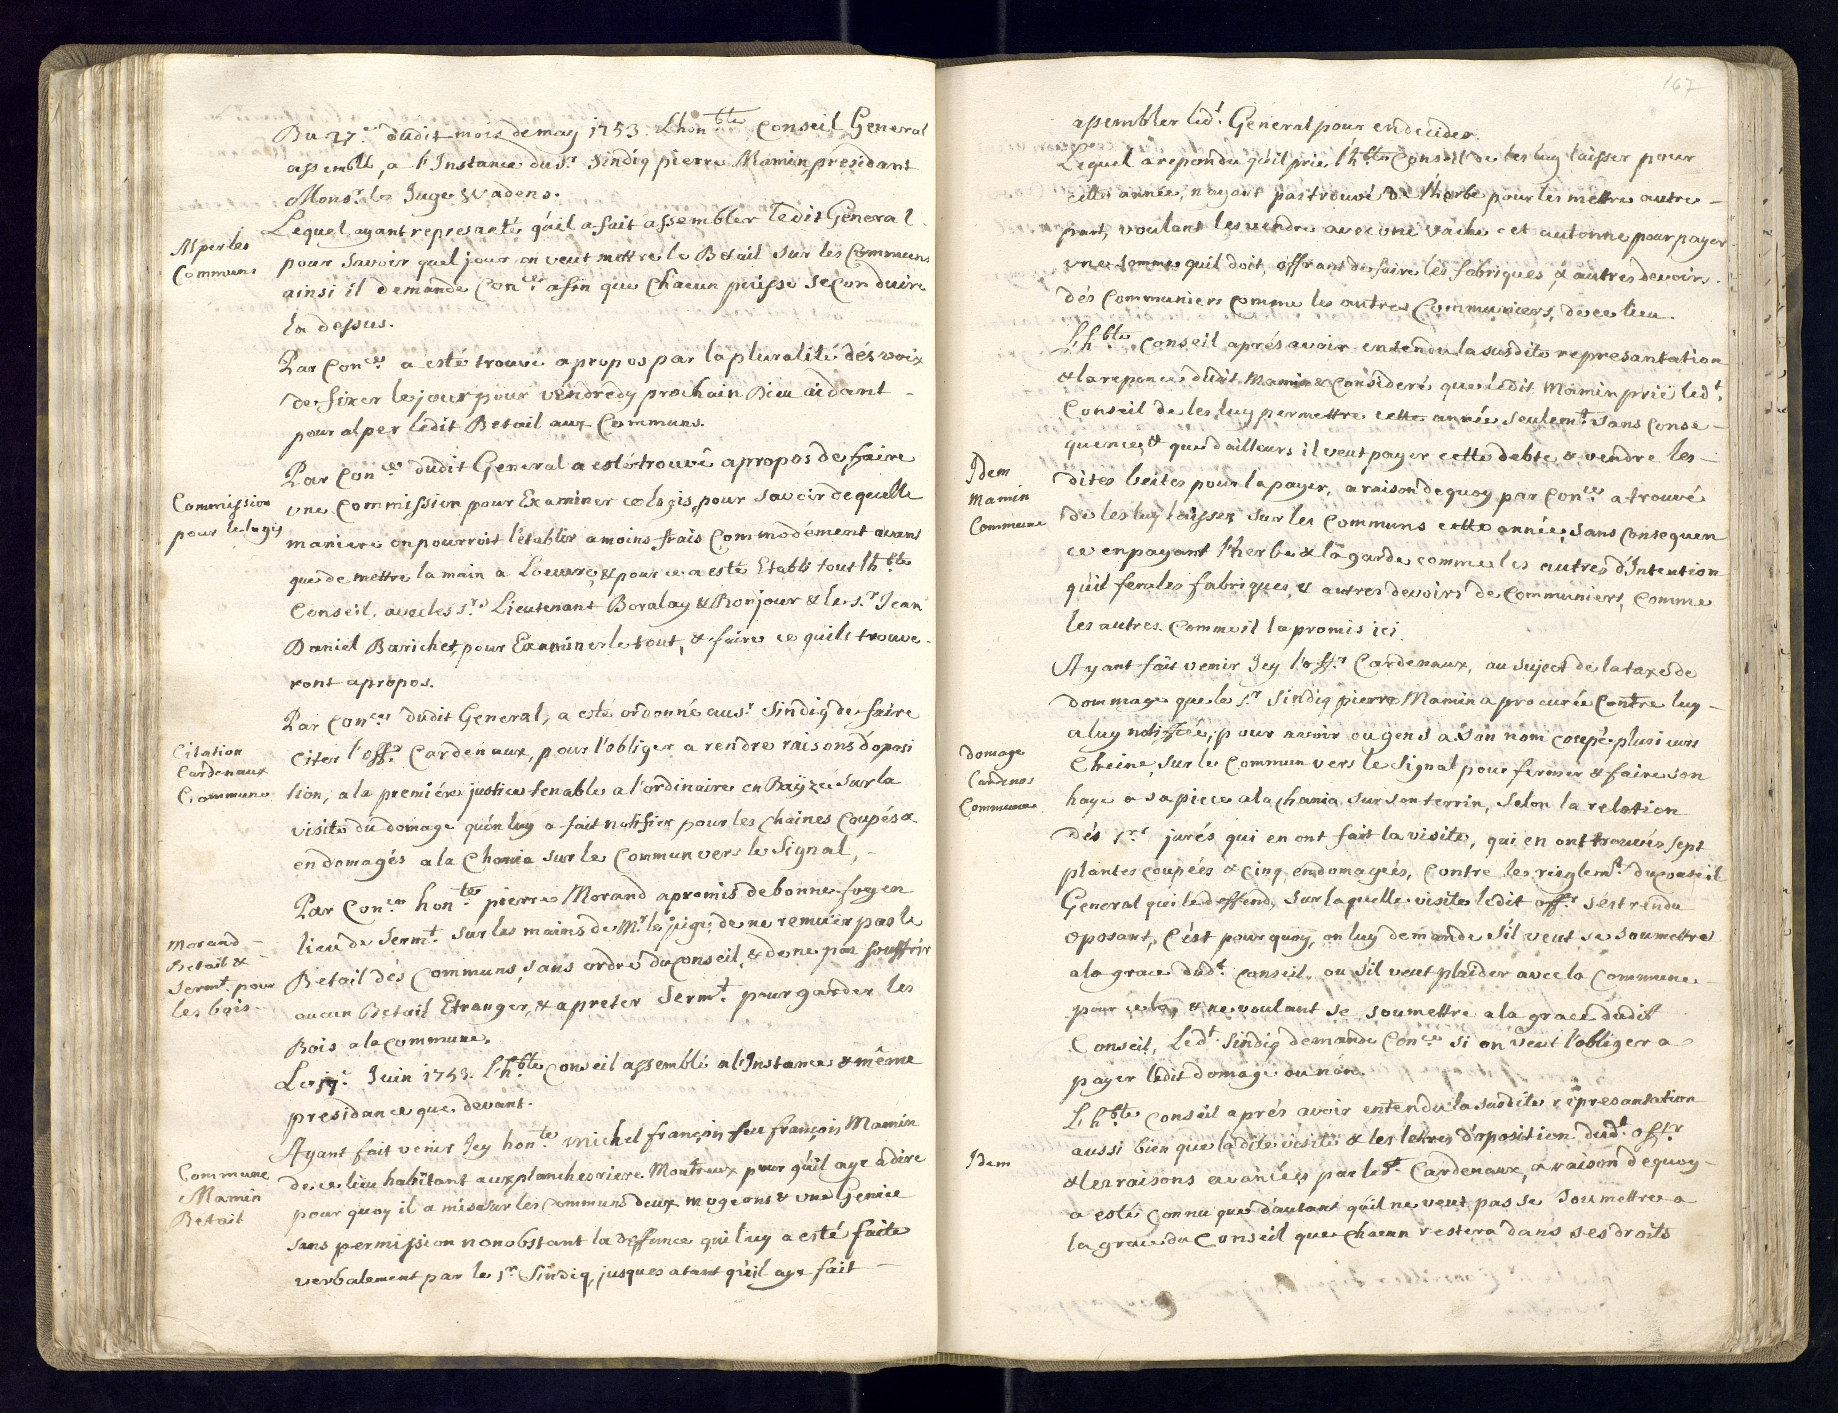 Du 27.e dudit mois de may 1753. Lhon.ble Conseil General
assemblé, a l'Instance du S.r Sindiq pierre Mamin, presidant
Mons.r le Juge Wadens.
Lequel ayant represanté qu'il a fait assembler ledit General
Alper les
Communs
pour savoir quel jour on veut mettre le Betail sur les Communs
ainsi il demande Con.ce afin que Chacun puisse se Conduire
la dessus.
Par Con.ce a esté trouvé a propos par la pluralité dés voix
de fixer le jour pour vendredy prochain Dieu aidant
pour alper lédit Betail aux Communs.
Par Con.ce dudit General a esté trouvé a propos de faire
Commission
pour le logis
une Commission pour Examiner ce logis, pour savoir de quelle
maniere on pourroit l'établir a moins frais Commodément avant
que de mettre la main a Loeuvre, & pour ce a esté Etabli tout lh.ble
Conseil, avec les S.rs Lieutenant Boralay & Bonjour & le S.r Jean
Daniel Barichet, pour Examiner le tout, & faire ce quils trouve-
ront apropos.
Par Con.ce dudit General, a esté ordonné au S.r Sindiq de faire
Citation
Cardenaux
Commune
Citer l'off.r Cardenaux, pour l'obliger a rendre raisons d'oposi
tion, a la premiére justice tenable a l'ordinaire en Bayze sur la
visite du domage qu'on luy a fait notifier pour les chaines Coupés &
endomagés a la Chania sur le Commun vers le Signal,
Par Con.ce hon.te pierre Morand a promis de bonne foy en
Morand
Betail &
Serm.t pour
les bois
lieu de Serm.t sur les mains de M.r le juge, de ne remuer pas le
Betail dés Communs, sans ordre du Conseil, & de ne pas souffrir
aucun Betail Etranger, & a preter Serm.t pour garder les
Bois a la commune.
Le 17.e Juin 1753. Lh.ble Conseil assemblé a l'Instance & même
presidance que devant.
Ayant fait venir Jcy hon.te Michel françois feu françois Mamin
Commune
Mamin
Betail
de ce lieu habitant aux planches riere Montreux pour qu'il aye à dire
pour quoy il a mis sur les communs deux mogeons & une Genice
sans permission nonobstant la deffence qui luy a esté faite
verbalement par le S.r Sindiq, jusques a tant qu'il aye fait
167
assembler led.t General pour en decider.
Lequel a repondu qu'il prie l'h.ble Conseil de les luy laisser pour
cette année, n'ayant pas trouvé de l'herbe pour les mettre autre-
part, voulant les vendre avec une vache cet autonne pour payer
une somme quil doit, offrant de faire les fabriques & autres devoirs
dés Communiers comme les autres Communiers, de ce lieu.
Lh.ble Conseil aprés avoir entendu la susdite represantation
& la reponce dudit Mamin & Consideré que lédit Mamin prie led.t
Conseil de les luy permettre cette année seulem.t sans conse-
Jdem
Mamin
Commune
quence, & que d'ailleurs il veut payer cette debte, & vendre les
dites beites pour la payer, a raison de quoy par Con.ce a trouvé
de les luy laisser sur les Communs cette année, sans consequen
ce en payant l'herbe & la garde comme les autres d'Intention
qu'il fera les fabriques, & autres devoirs de Communiers, comme
les autres. Comme il la promis ici.
Ayant fait venir Jcy l'off.r Cardenaux, au suject de la taxe de
dommage que le S.r Sindiq pierre Mamin a procurée Contre luy
domage
Cardenos
Commune
a luy notifiée, pour avoir ou gens a son nom coupé plusieurs
Cheine, sur le Commun vers le Signal pour fermer & faire son
haye a sa piece a la Chania sur son terrin, selon la relation
dés S.rs jurés qui en ont fait la visite, qui en ont trouvés sept
plantes coupées & cinq endomagées, contre les rieglem.t du conseil
General qui le deffend, sur laquelle visite ledit off.r sést rendu
oposant, C'ést pour quoy, on luy demande s'il veut se soumettre
a la grace dud.t conseil, ou s'il veut plaider avec la Commune
pour cela, & ne voulant se soumettre a la grace dudit
Conseil, Led.t Sindiq demande Con.ce si on veut l'obliger a
payer lédit domage ou non.
Lh.ble Conseil aprés avoir entendu la susdite represantation
Jdem
aussi bien que ladite visite & les lettres d'oposition dud.t off.r
& les raisons avancées par led.t Cardenaux, a raison de quoy
a esté connu que d'autant qu'il ne veut pas se soumettre a
la grace du Conseil que chacun restera dans ses droits